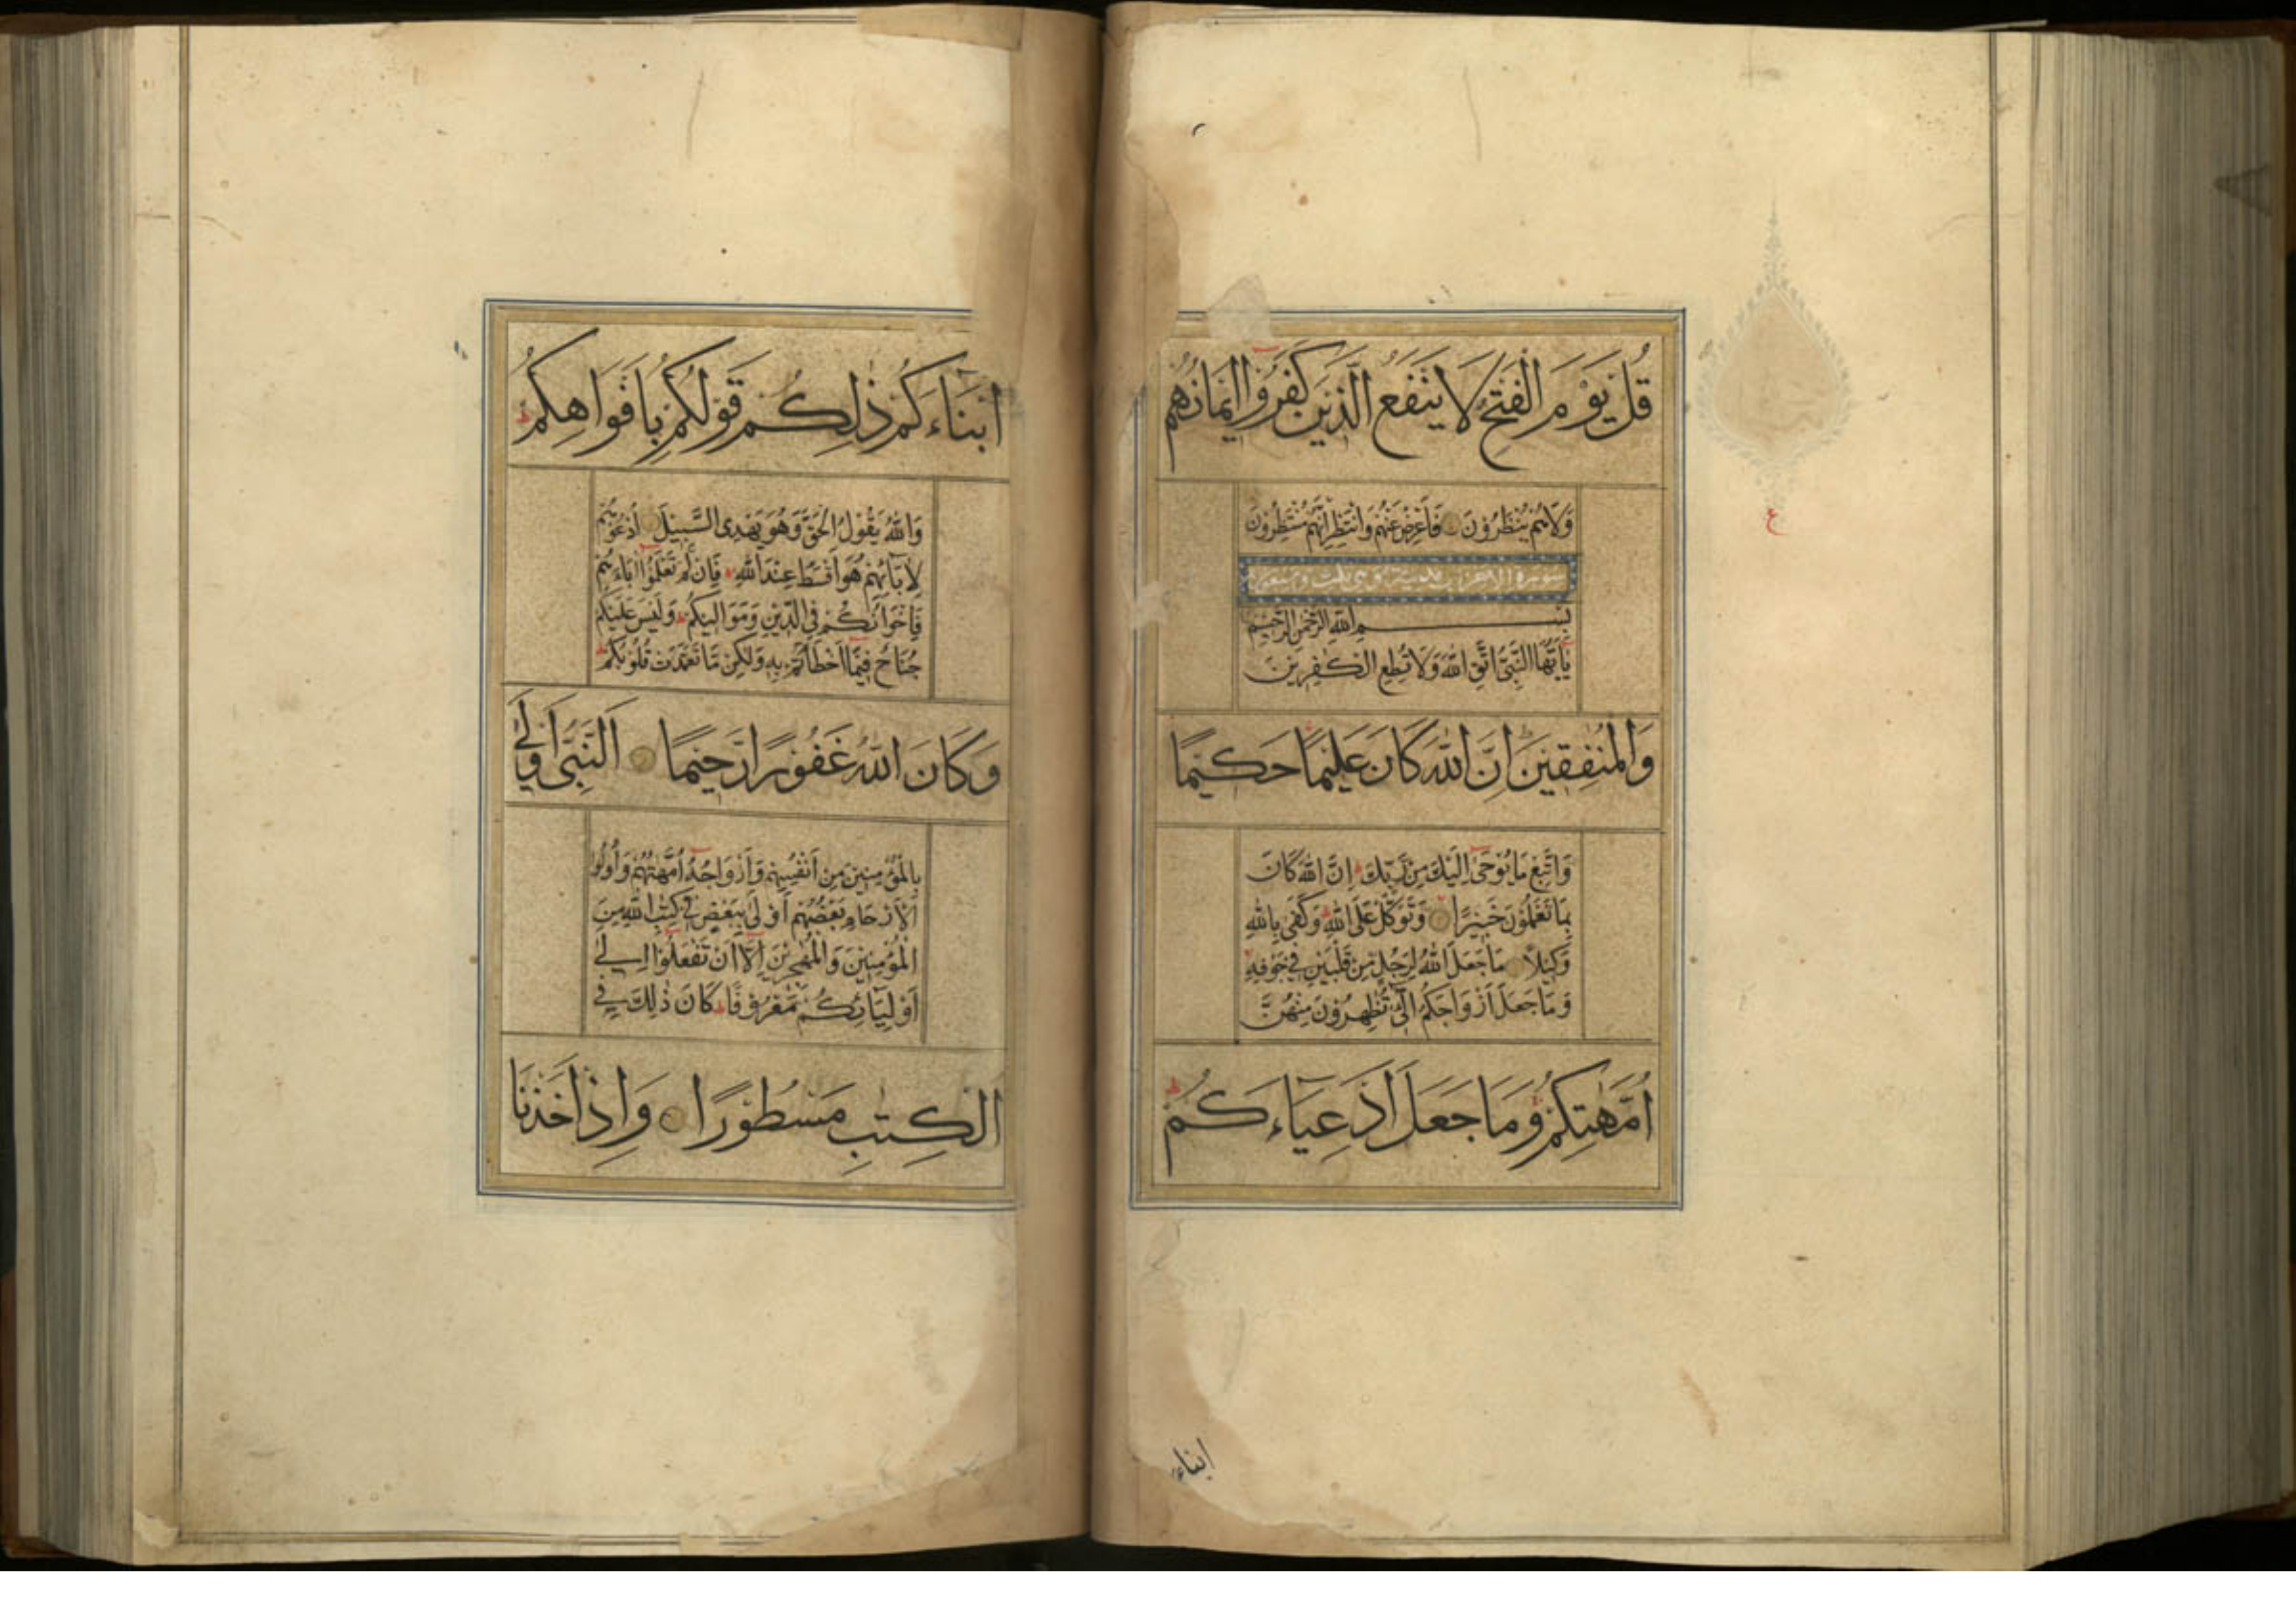 قُلْ يَوْمَ الْفَتْحِ لَا يَنْفَعُ الَّذِينَ كَفَرُوا إِيمَانُهُمْ
وَلَا هُمْ يُنْظَرُونَ فَأَعْرِضْ عَنْهُمْ وَانْتَظِرْ إِنَّهُمْ مُنْتَظِرُونَ
سورة الاحزاب مدنية وهي ثلث وسبعون
بِسْمِ اللَّهِ الرَّحْمَنِ الرَّحِيمِ
يَا أَيُّهَا النَّبِيُّ اتَّقِ اللَّهَ وَلَا تُطِعِ الْكَفِرِينَ
وَالْمُنَفِقِينَ إِنَّ اللَّهَ كَانَ عَلِيمًا حَكِيمًا
وَاتَّبِعْ مَا يُوحَى إِلَيْكَ مِنْ رَبِّكَ إِنَّ اللَّهَ كَانَ
بِمَا تَعْمَلُونَ خَبِيرًا وَتَوَكَّلْ عَلَى اللَّهِ وَكَفَى بِاللَّهِ
وَكِيلًا مَا جَعَلَ اللَّهُ لِرَجُلٍ مِنْ قَلْبَيْنِ فِي جَوْفِهِ
وَمَا جَعَلَ أَزْوَاجَكُمُ الَّئِي تُظَهِرُونَ مِنْهُنَّ
أُمَّهَتِكُمْ وَمَا جَعَلَ أَدْعِيَاءَكُمْ
ع
ابناء
أَبْنَاءَكُمْ ذَلِكُمْ قَوْلُكُمْ بِأَفْوَاهِكُمْ
وَاللَّهُ يَقُولُ الْحَقَّ وَهُوَ يَهْدِي السَّبِيلَ أُدْعُوهُمْ
لِآبَائِهِمْ هُوَ أَقْسَطُ عِنْدَ اللَّهِ فَإِنْ لَمْ تَعْلَمُوا آبَاءَهُمْ
فَإِخْوَانُكُمْ فِي الدِّينِ وَمَوَالِيكُمْ وَلَيْسَ عَلَيْكُمْ
جُنَاحٌ فِيمَا أَخْطَأْتُمْ بِهِ وَلَكِنْ مَا تَعَمَّدَتْ قُلُوبُكُمْ
وَكَانَ اللَّهُ غَفُورًا رَحِيمًا النَّبِيُّ أَوْلَى
بِالْمُؤْمِنِينَ مِنْ أَنْفُسِهِمْ وَأَزْوَاجُهُ أُمَّهَتُهُمْ وَأُولُوا
الْأَرْحَامِ بَعْضُهُمْ أَوْلَى بِبَعْضٍ فِي كِتَبِ اللَّهِ مِنَ
الْمُؤْمِنِينَ وَالْمُهَجِرِينَ إِلَّا أَنْ تَفْعَلُوا إِلَى
أَوْلِيَائِكُمْ مَعْرُوفًا كَانَ ذَلِكَ فِي
الْكِتَبِ مَسْطُورًا وَإِذْ أَخَذْنَا